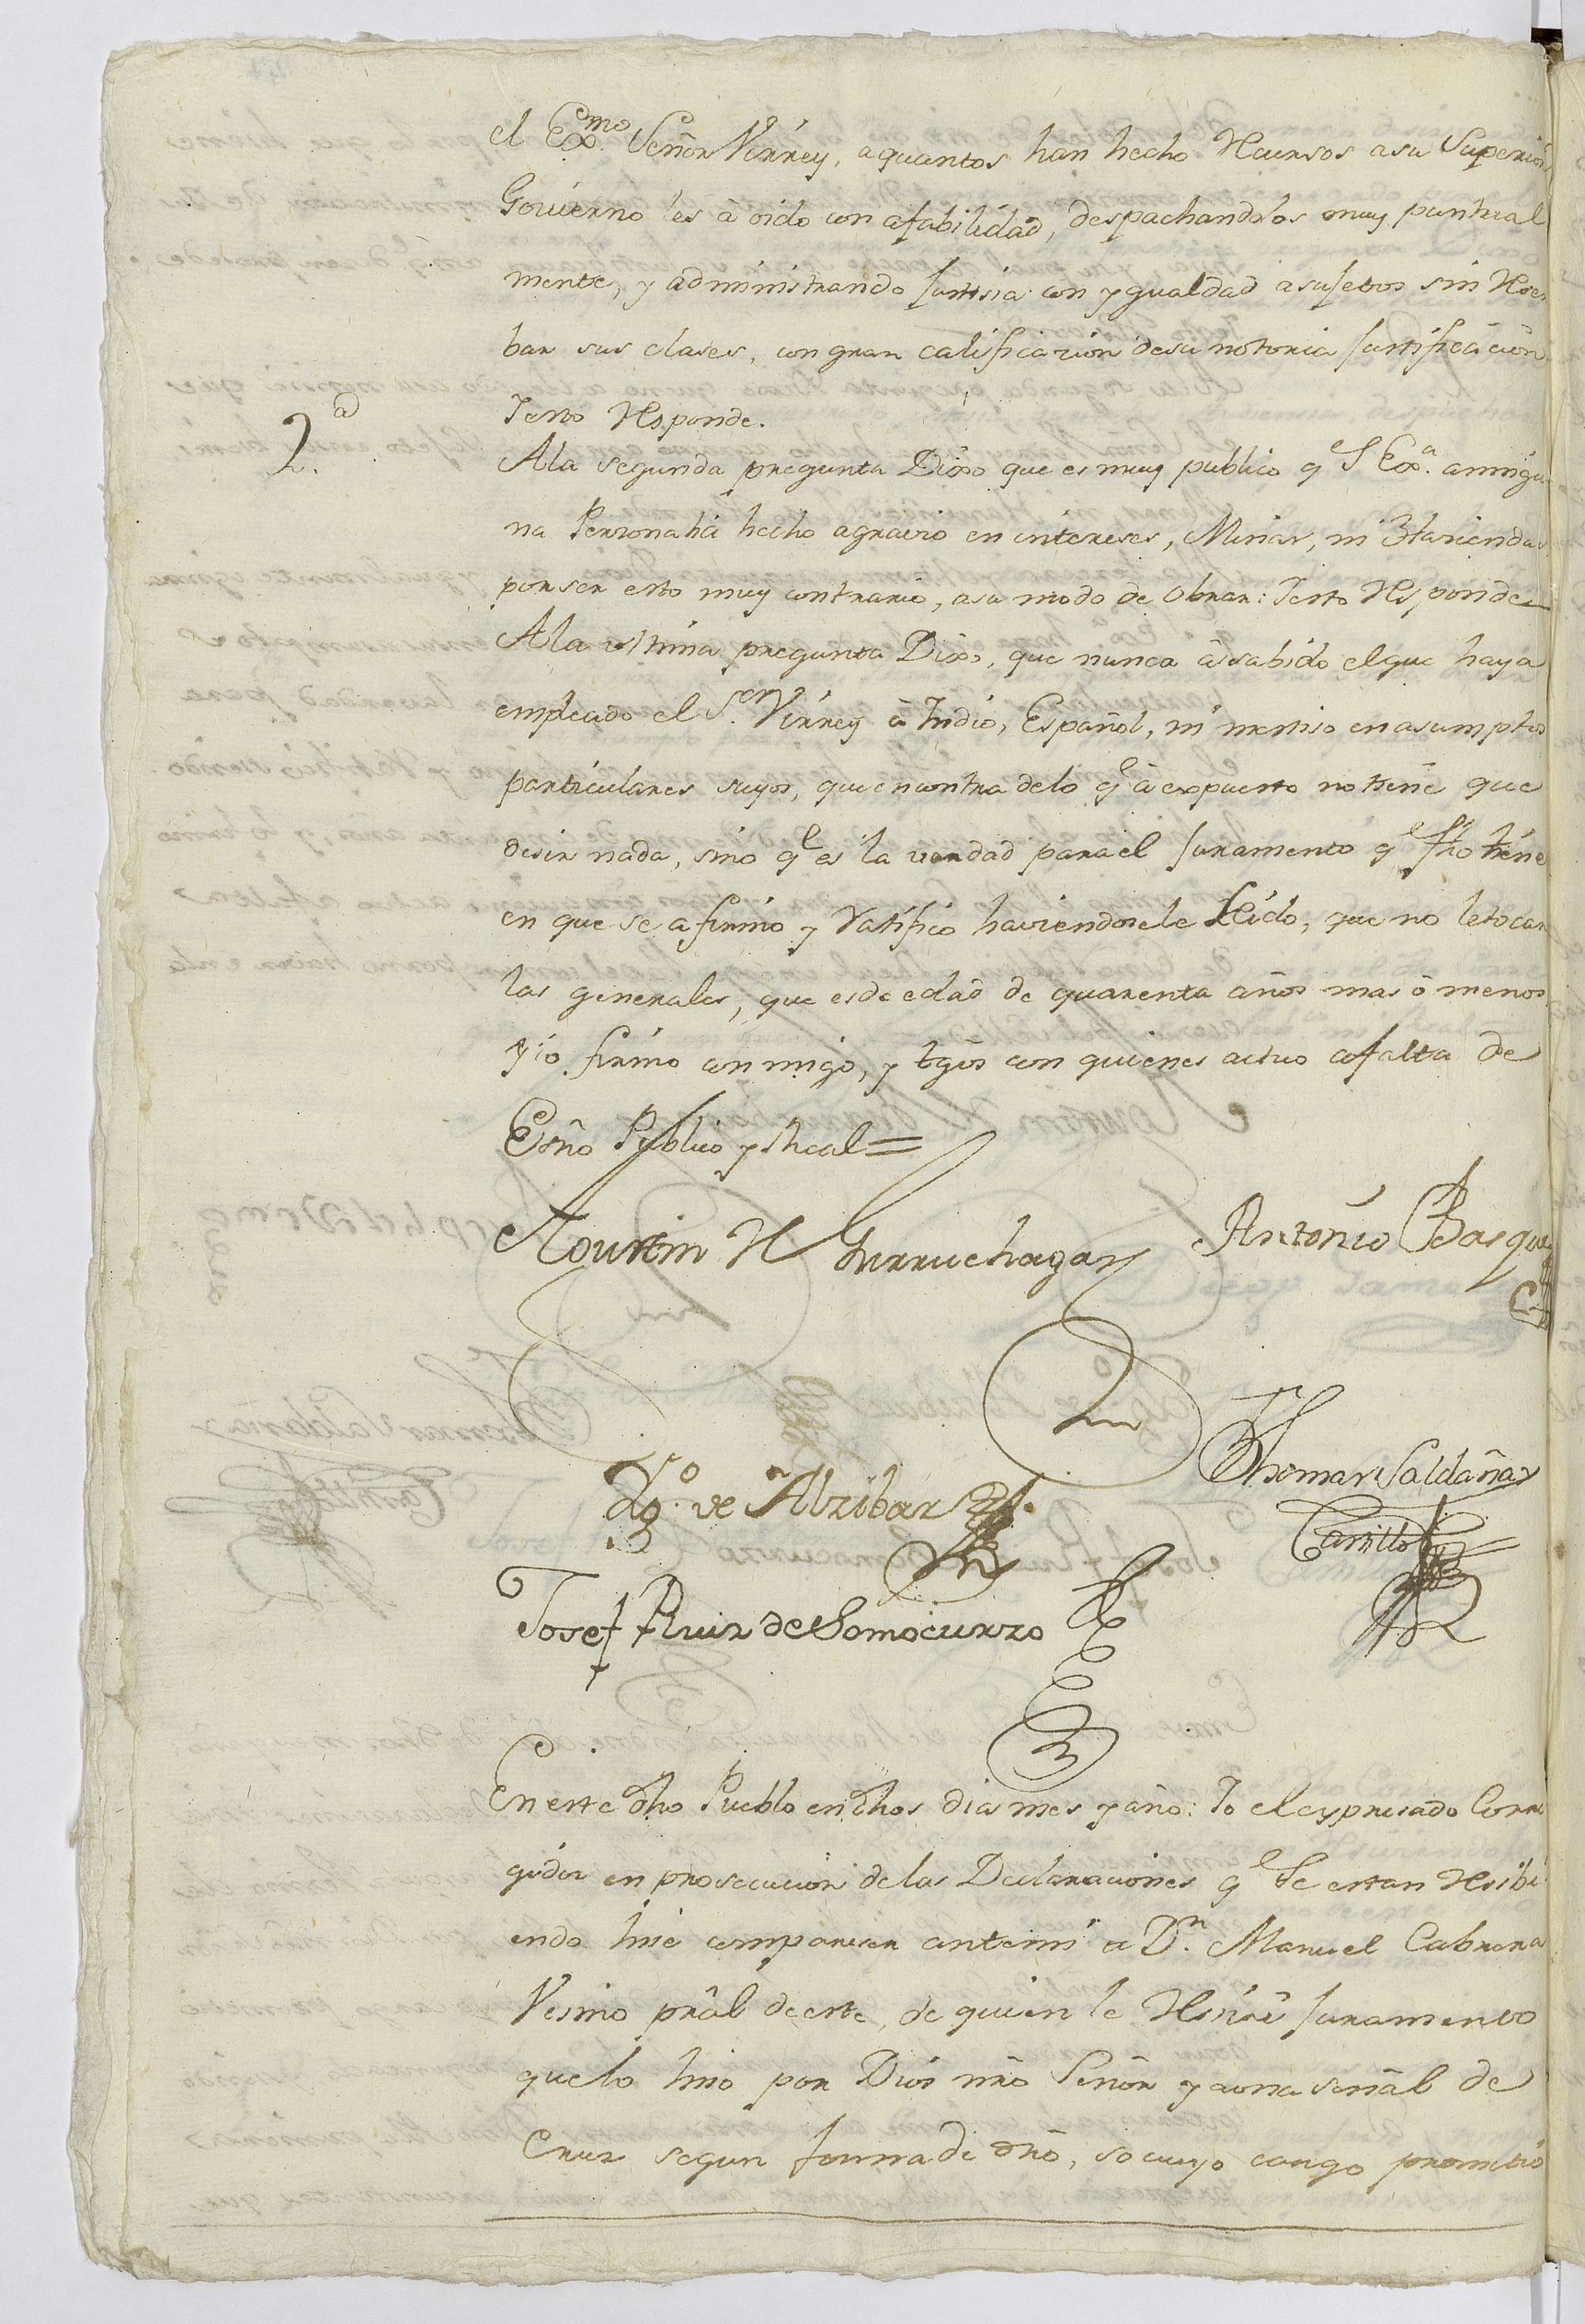 el Exmo. Señor Virrey, a quantos han hecho Recursos a su Superior
Govierno les â oido con afabilidad, despachandolos muy puntual
mente, y administrando Justisia con ygualdad a sujetos sin Reser
bar sus clases, con gran calificacion de su notoria Justificacion
Y esto Responde.
2.a
A la segunda pregunta Dixo que es muy publico qe S Exa. a ningu
na Perzona há hecho agravio en intereses, Minas, ni Haziendas
por ser esto muy contrario, a su modo de obrar: Y esto Responde
A la ultima pregunta Dixo, que nunca â sabido el que haya
empleado el Sen.or Virrey â Indio, Español, ni mestiso en asumptos
particulares suyos, que en contra de lo qe â expuesto no tiene que
desir nada, sino qe es la verdad para el Juramento qe fho tiene
en que se afirmo y Ratifico haviendosele Leido, que no le tocan
las generales, que es de edad de quarenta años mas ô menos
y lo firmo conmigo, y tgos con quienes actuo a falta de
Esño Publico y Real =
Agustin R Gurruchagar
Antonio Basque
Dgo. de Alzibar
Thomas Saldaña y
Castillo
Josef Ruiz de Somocurzo
En este dho Pueblo en dhos dias mes y año: Yo el expresado Corre
gidor en prosecucion de las Declaraciones qe se estan Resibi
endo hise compareser ante mi a Dn. Manuel Cabrera
Vesino prâl de este, de quien le Resivi Juramento
que lo hiso por Dios nrô Señor y a una señal de
Cruz segun forma de drô, so cuyo cargo prometio